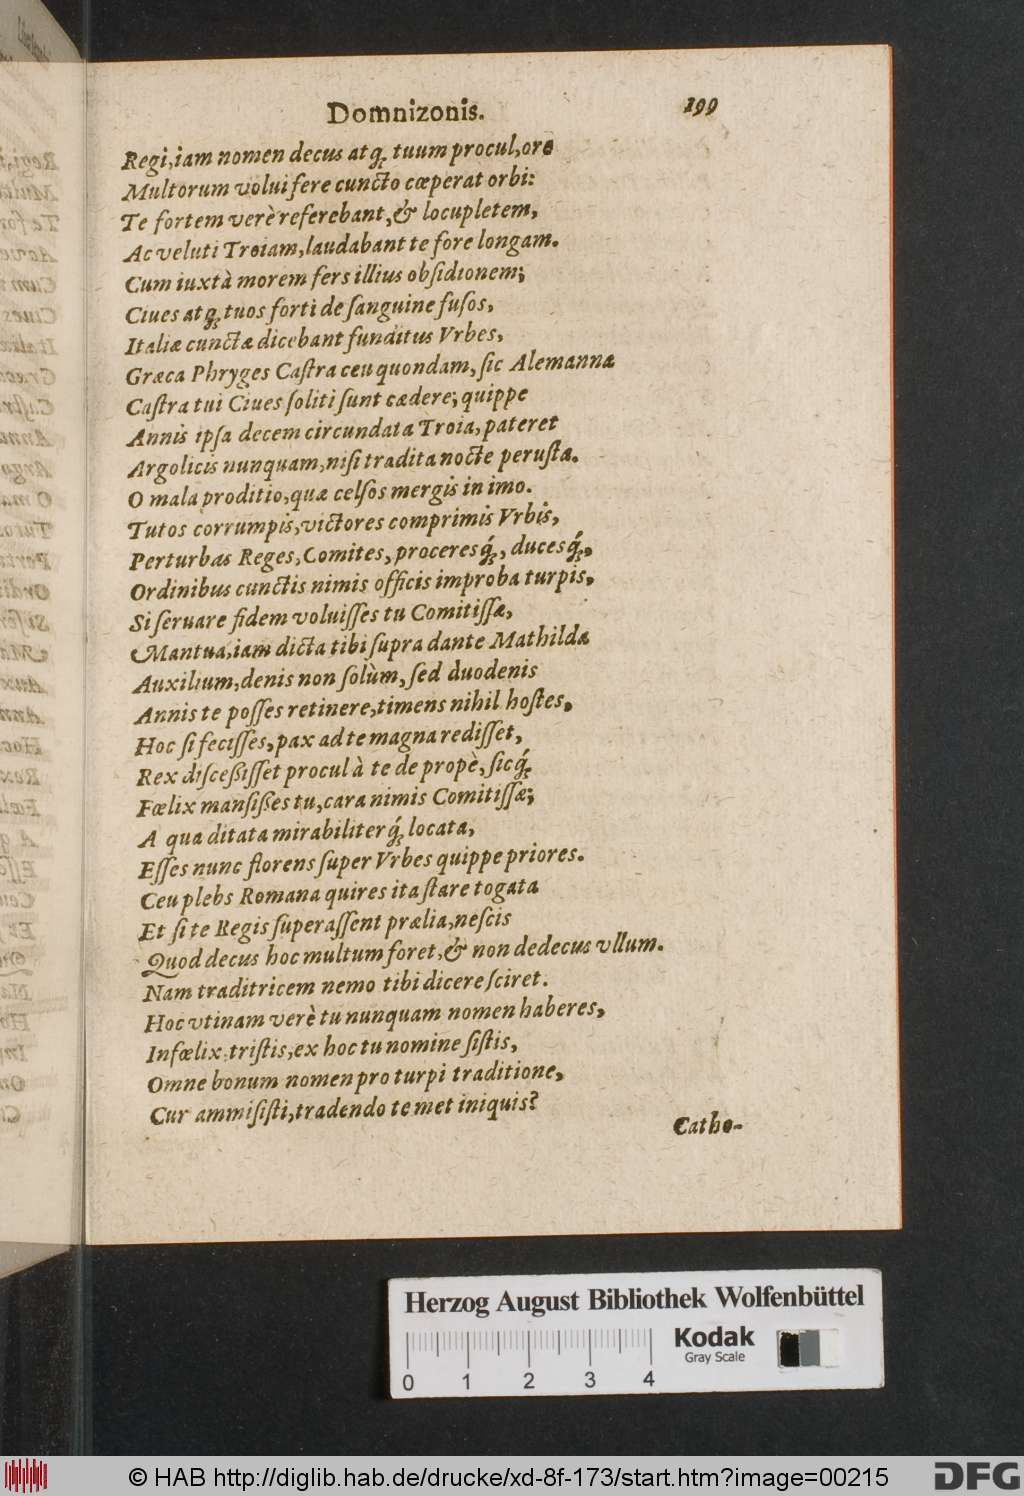 Domnizonis. 199
Regi, iam nomen decus atq; tuum procul, ore
Multorum volui fere cuncto cœperat orbi:
Te fortem verè referebant, & locupletem,
Ac veluti Troiam, laudabant te fore longam.
Cum iuxtà morem fers illius obſidionem;
Ciues atq; tuos forti de ſanguine fuſos,
Italiæ cunctæ dicebant funditus Vrbes,
Græca Phryges Caſtra ceu quondam, ſic Alemanna
Caſtra tui Ciues ſoliti ſunt cædere; quippe
Annis ipſa decem circundata Troia, pateret
Argolicis nunquam, niſi tradita nocte peruſta.
O mala proditio, quæ celſos mergis in imo.
Tutos corrumpis, victores comprimis Vrbis,
Perturbas Reges, Comites, proceresq́;, ducesq́;,
Ordinibus cunctis nimis officis improba turpis,
Si ſeruare fidem voluiſſes tu Comitiſſæ,
Mantua, iam dicta tibi ſupra dante Mathilda
Auxilium, denis non ſolùm, ſed duodenis
Annis te poſſes retinere, timens nihil hoſtes,
Hoc ſi feciſſes, pax ad te magna rediſſet,
Rex diſceßiſſet procul à te de propè, ſicq́;
Fœlix manſißes tu, cara nimis Comitiſſæ;
A qua ditata mirabiliterq́; locata,
Eſſes nunc florens ſuper Vrbes quippe priores.
Ceu plebs Romana quires ita ſtare togata
Et ſi te Regis ſuperaſſent prælia, neſcis
Quod decus hoc multum foret, & non dedecus vllum.
Nam traditricem nemo tibi dicere ſciret.
Hoc vtinam verè tu nunquam nomen haberes,
Infœlix, triſtis, ex hoc tu nomine ſiſtis,
Omne bonum nomen pro turpi traditione,
Cur ammiſiſti, tradendo temet iniquis?
Catho-
Herzog August Bibliothek Wolfenbüttel
Kodak
Gray Scale
0 1 2 3 4
© HAB http://diglib.hab.de/drucke/xd-8f-173/start.htm?image=00215
DFG